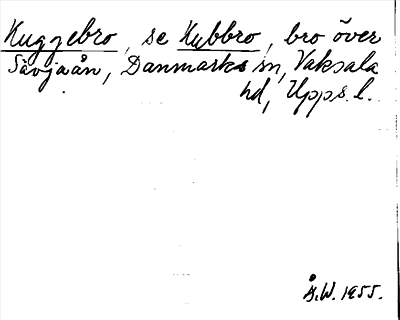 Kuggebro, se Kubbro, bro över
Sävjaån, Danmarks sn, Vaksala
hd, Upps. l.
Å.W. 1955.